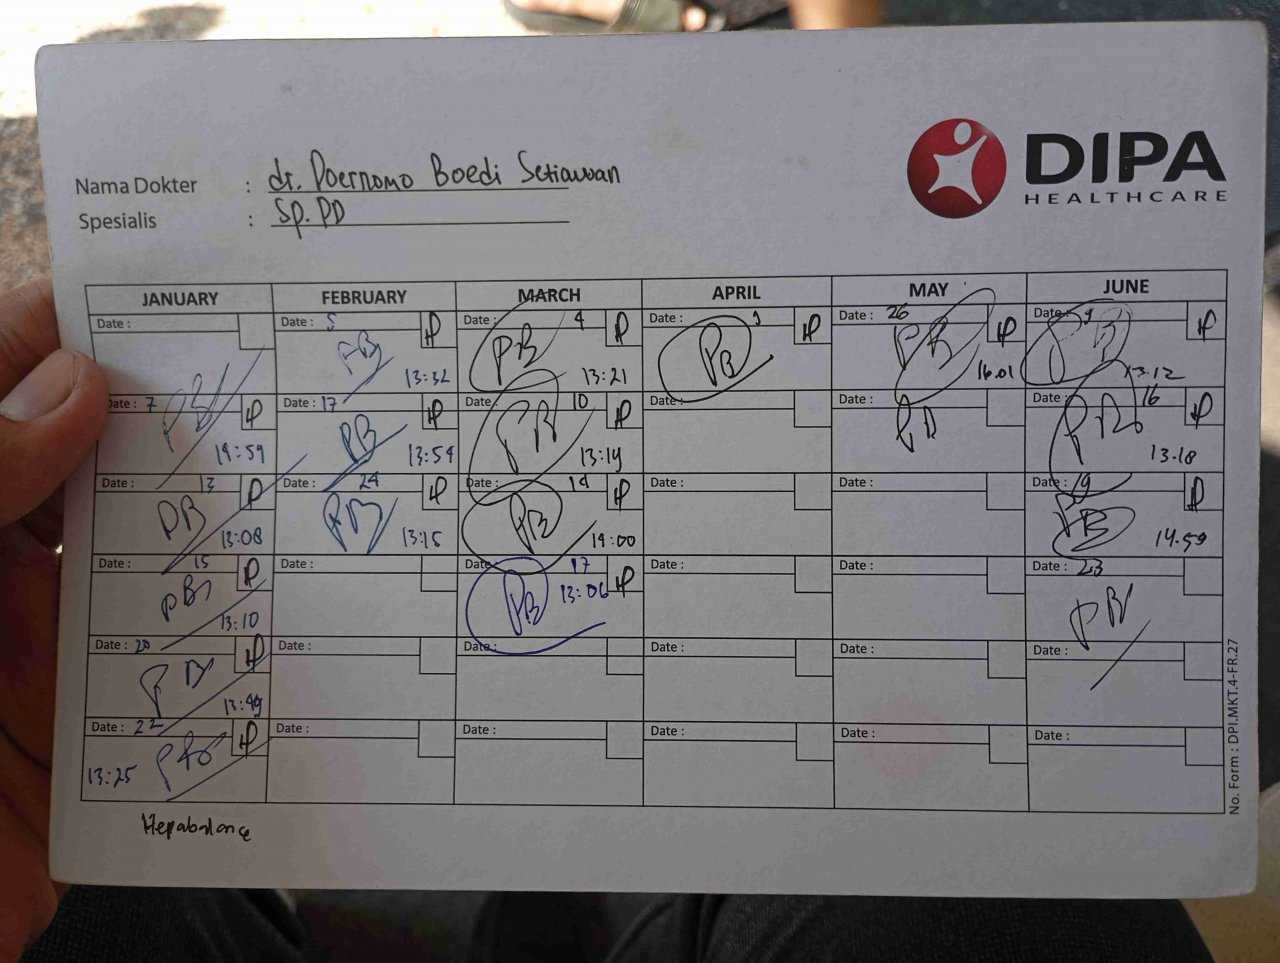 DIPA
HEALTHCARE
Nama Dokter : dr. Poernomo Boedi Setiawan
Spesialis : Sp.PD
JANUARY FEBRUARY MARCH APRIL MAY JUNE
Date : Date : 5 Date : 4 Date : Date : 26 Date : 9
PB PB PB PB PB
13:32 13:21 16.01 13.12
Date : 7 Date : 17 Date : 10 Date : Date : Date : 16
PB PB PB
14:59 13:54 13:19 13.18
Date : 13 Date : 24 Date : 14 Date : Date : Date : 19
PB PB PB PB
13:08 13:15 14:00 14.59
Date : 15 Date : Date : 17 Date : Date : Date : 23
PB PB 13:06 PB
13:10
Date : 20 Date : Date : Date : Date : Date :
PB
13:49
Date : 22 Date : Date : Date : Date : Date :
13:25
Hepabalance
No. Form : DPI.MKT.4-FR.27